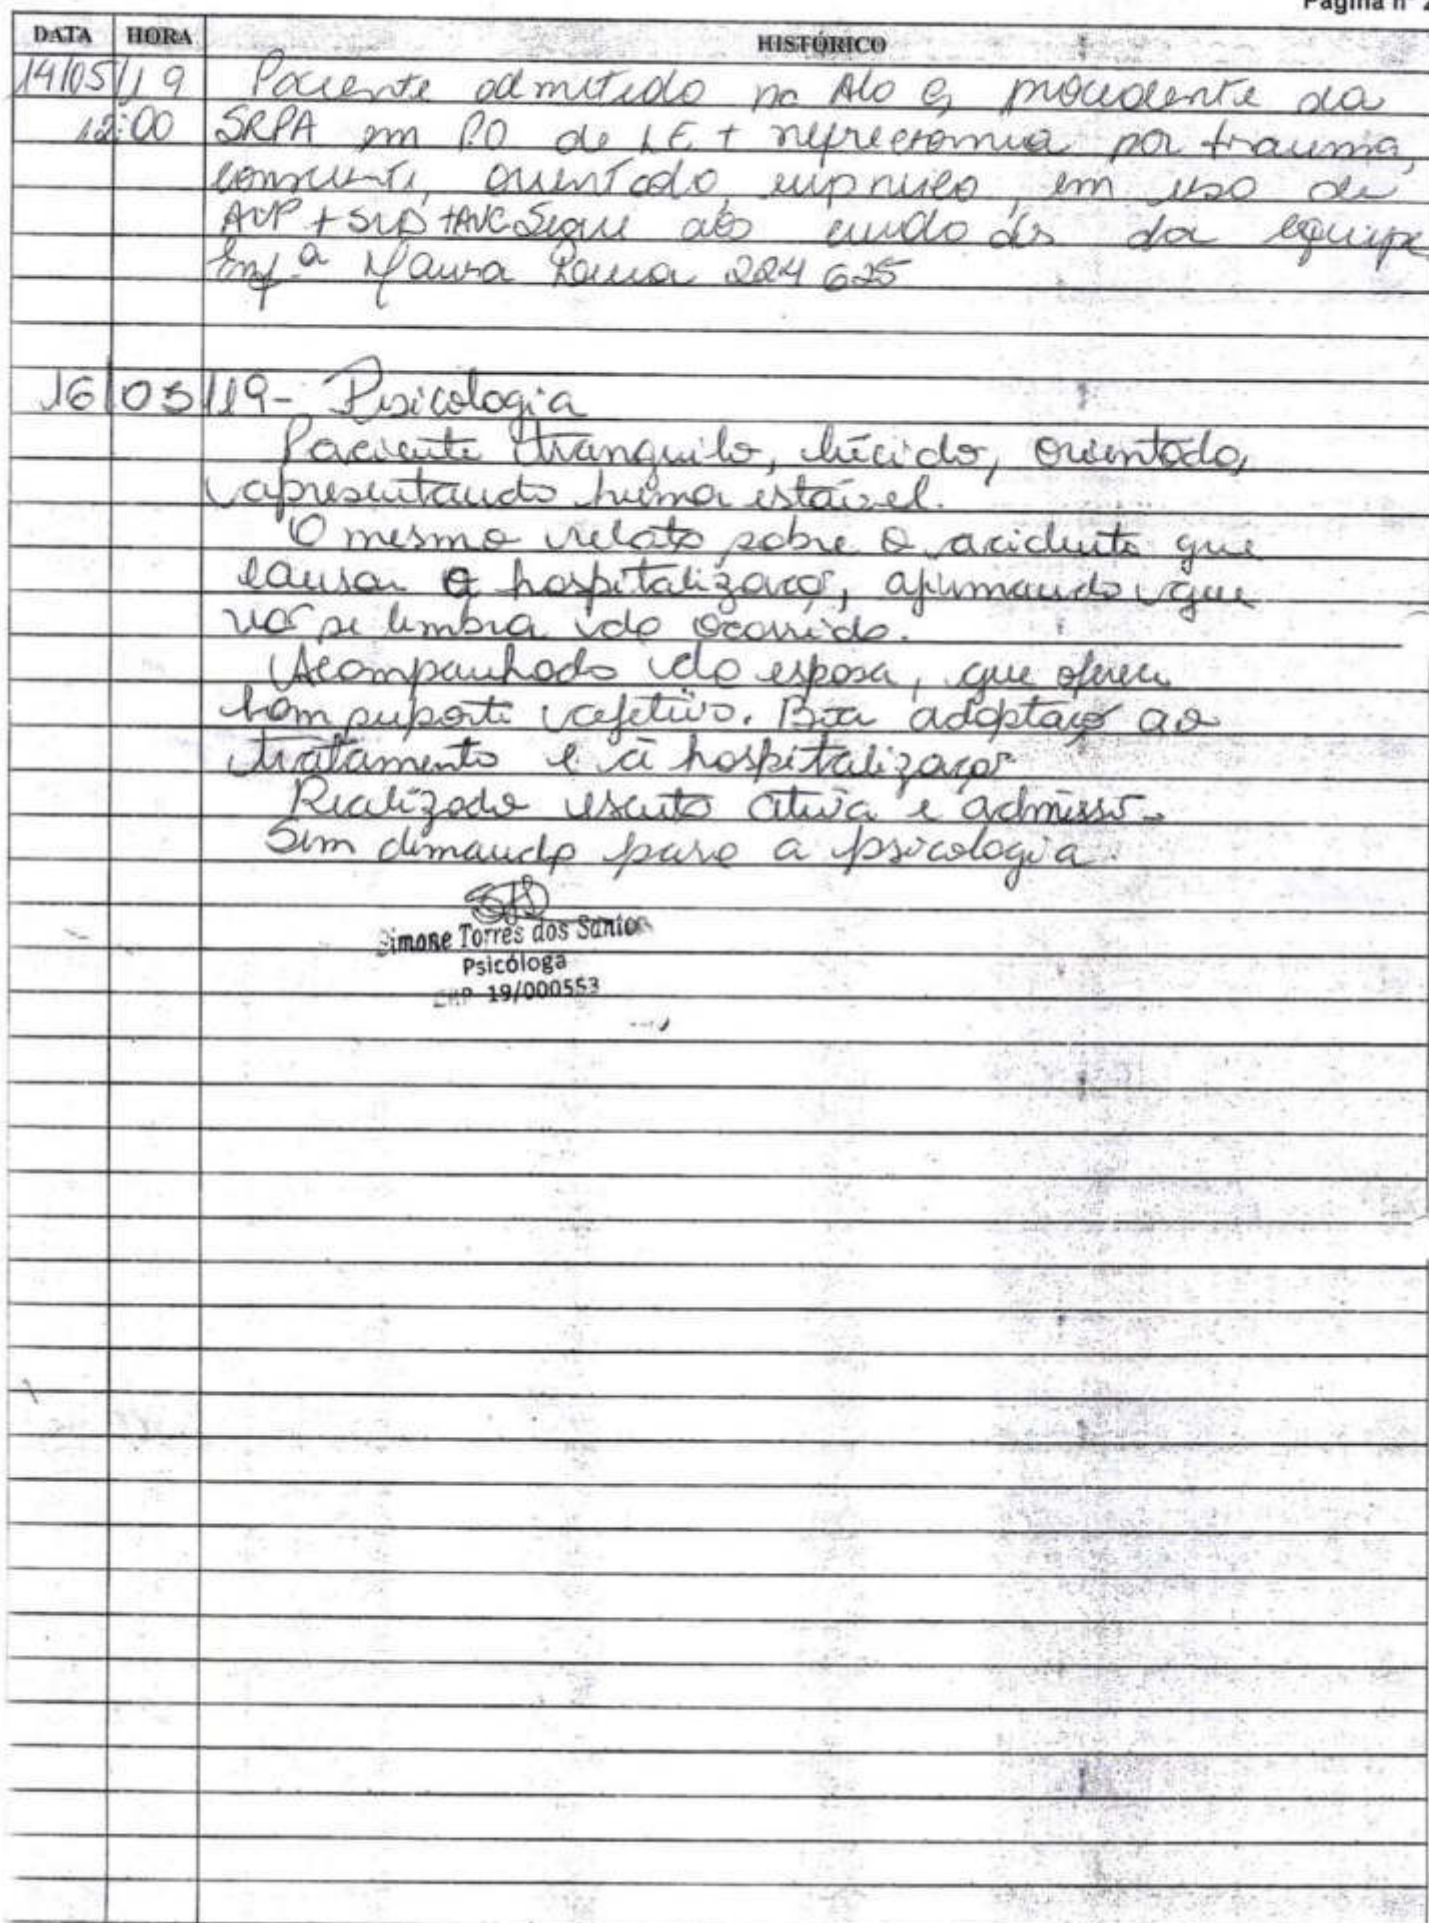 Página nº 2
DATA HORA HISTÓRICO
14/05/19 Paciente admitido na Ala G, procedente da
12:00 SRPA em P.O de LE + nefrectomia por trauma,
consciente, orientado, eupneico, em uso de
AVP + SVD + AVC Segue aos cuidados da equipe
Enfª 224 625
16/05/19 - Psicologia
Paciente tranquilo, lúcido, orientado,
apresentando humor estável.
O mesmo relato sobre o acidente que
causou a hospitalização, afirmando que
não se lembra do ocorrido.
Acompanhado da esposa, que oferece
bom suporte afetivo. Boa adaptação ao
tratamento e à hospitalização
Realizado escuta ativa e admissão.
Sem demanda para a psicologia.
Simone Torres dos Santos
Psicóloga
CRP 19/000553